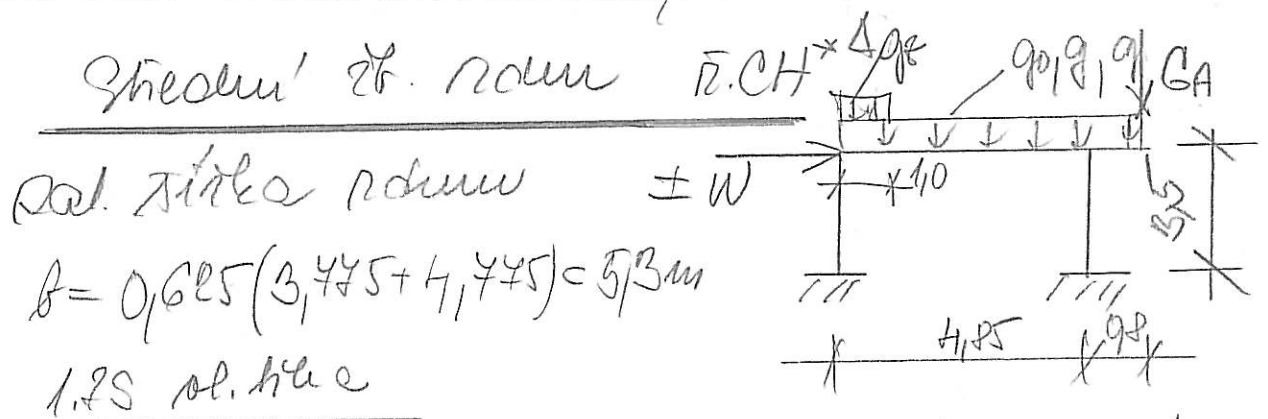 Střední žb. rám ř. CH* Δgz g0, g, q GA
zat. šířka rámu ± W 1,0 3,5
b = 0,625(3,775+4,775) = 5,3m
4,85 0,8
1.ZS vl. tíha